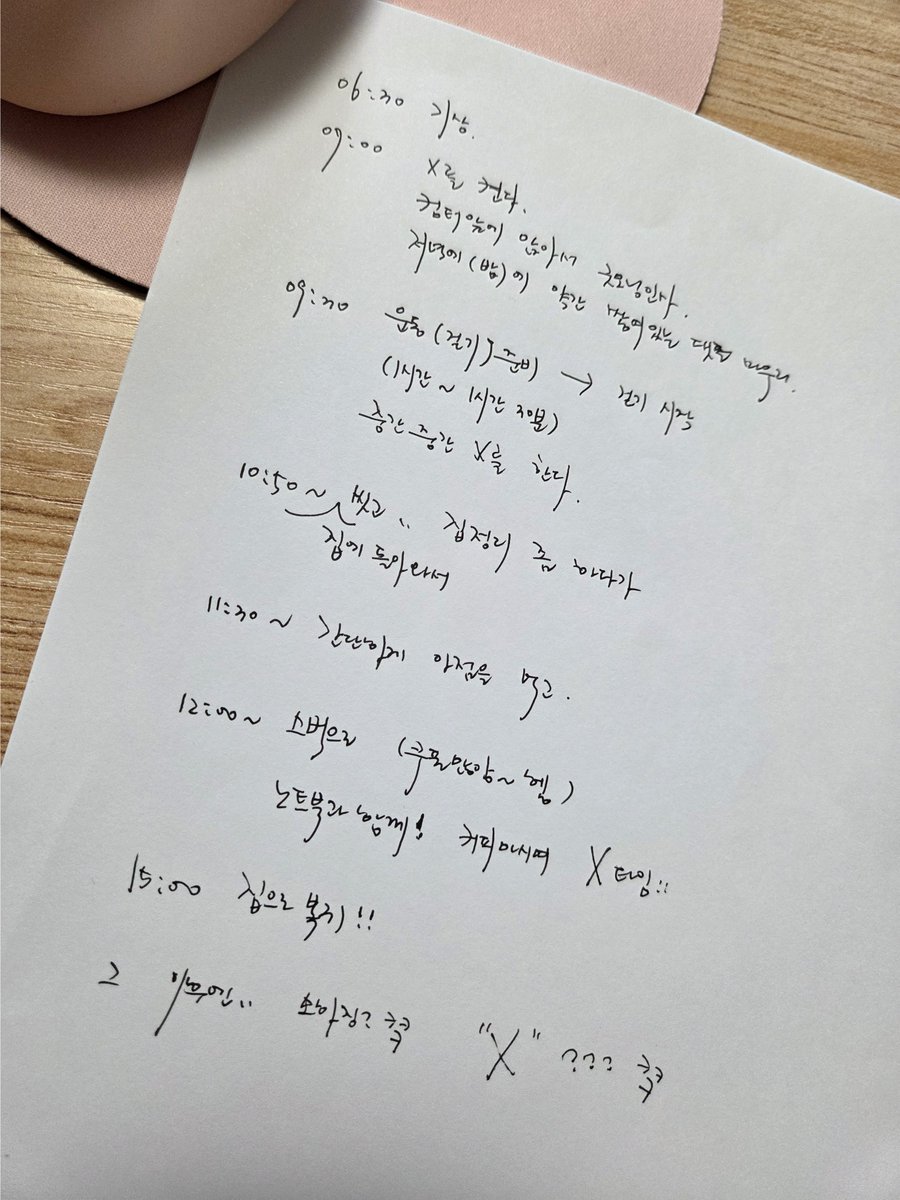 06:30 기상.
09:00 X를 켠다.
컴터앞에 앉아서 굿모닝인사.
저녁에(밤)에 약간 쌓여있는 댓글 마무리.
09:30 운동(걷기)준비 → 걷기 시작
(1시간 ~ 1시간 30분)
중간중간 X를 한다.
10:50~ 씻고.. 집정리 좀 하다가
집에 돌아와서
11:30 ~ 간단하게 아점을 먹고.
12:00~ 스벅으로 (쿠폰만땅~헴)
노트북과 함께! 커피마시며 X타임!!
15:00 집으로 복귀!!
그 이후엔.. 쿅 "X" ??? 쿅